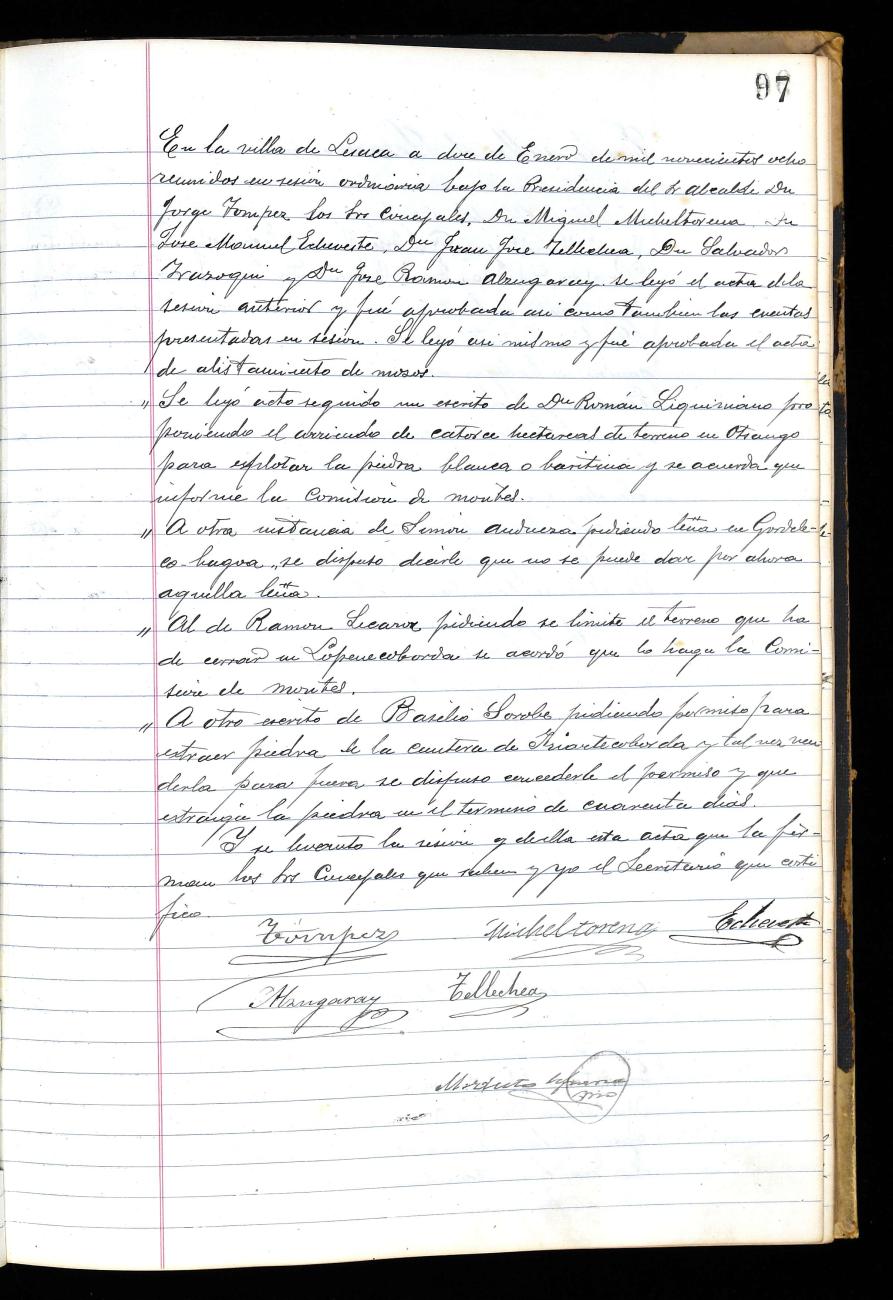 97
En la villa de Lesaca a doce de Enero de mil novecientos ocho
reunidos en sesión ordinaria bajo la Presidencia del Sr alcalde Dn
Jorge Tompez los Srs Concejales, Dn Miguel Micheltorena Dn
Jose Manuel Echeveste, Dn Juan Jose Tellechea, Dn Salvador
Irazoqui y Dn Jose Ramon Alzugaray se leyó el acta dela
sesion anterior y fué aprobada asi como tambien las cuentas
presentadas en sesion. Se leyó asi mismo y fué aprobada el acta
de alistamiento de mosos.
" Se leyó acto seguido un escrito de Dn Román Liquiniano pro
poniendo el arriendo de catorce hectareas de terreno en Otsango
para esplotar la piedra blanca o baritina y se acuerda que
informe la Comision de montes.
" A otra instancia de Simon Andueza pidiendo leña en Gordele-
co-bagoa, se dispuso decirle que no se puede dar por ahora
aquella leña.
" Al de Ramon Lecaroz pidiendo se limite el terreno que ha
de cerrar en Lopenecoborda se acordó que lo haga la Comi-
sion de montes.
" A otro escrito de Basilio Sorobe pidiendo permiso para
estraer piedra de la cantera de Iriartecoborda y tal vez ven
derla para fuera se dispuso concederle el permiso y que
estraiga la piedra en el termino de cuarenta dias.
Y se levanto la sesion y de ella esta acta que la fir-
man los Srs Concejales que saben y yo el Secretario que certi
fico.
Tómpez Micheltorena Echeveste
Alzugaray Tellechea